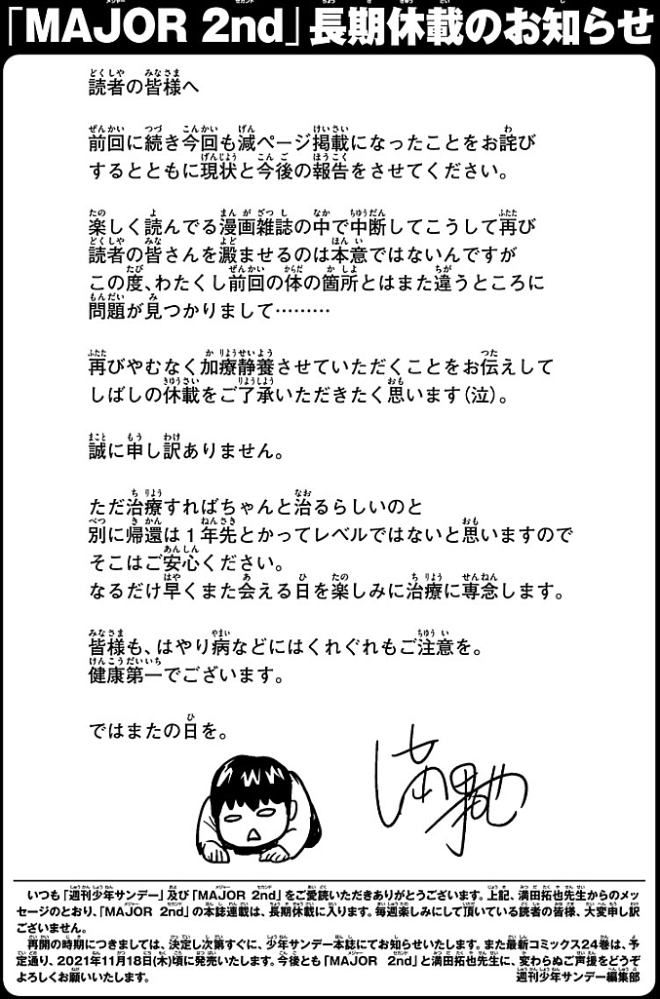 「MAJOR 2nd」長期休載のお知らせ
読者の皆様へ
前回に続き今回も減ページ掲載になったことをお詫び
するとともに現状と今後の報告をさせてください。
楽しく読んでる漫画雑誌の中で中断してこうして再び
読者の皆さんを澱ませるのは本意ではないんですが
この度、わたくし前回の体の箇所とはまた違うところに
問題が見つかりまして………
再びやむなく加療静養させていただくことをお伝えして
しばしの休載をご了承いただきたく思います(泣)。
誠に申し訳ありません。
ただ治療すればちゃんと治るらしいのと
別に帰還は1年先とかってレベルではないと思いますので
そこはご安心ください。
なるだけ早くまた会える日を楽しみに治療に専念します。
皆様も、はやり病などにはくれぐれもご注意を。
健康第一でございます。
ではまたの日を。
満田拓也
いつも「週刊少年サンデー」及び「MAJOR 2nd」をご愛読いただきありがとうございます。上記、満田拓也先生からのメッ
セージのとおり、「MAJOR 2nd」の本誌連載は、長期休載に入ります。毎週楽しみにして頂いている読者の皆様、大変申し訳
ございません。
再開の時期につきましては、決定し次第すぐに、少年サンデー本誌にてお知らせいたします。また最新コミックス24巻は、予
定通り、2021年11月18日(木)頃に発売いたします。今後とも「MAJOR 2nd」と満田拓也先生に、変わらぬご声援をどうぞ
よろしくお願いいたします。
週刊少年サンデー編集部